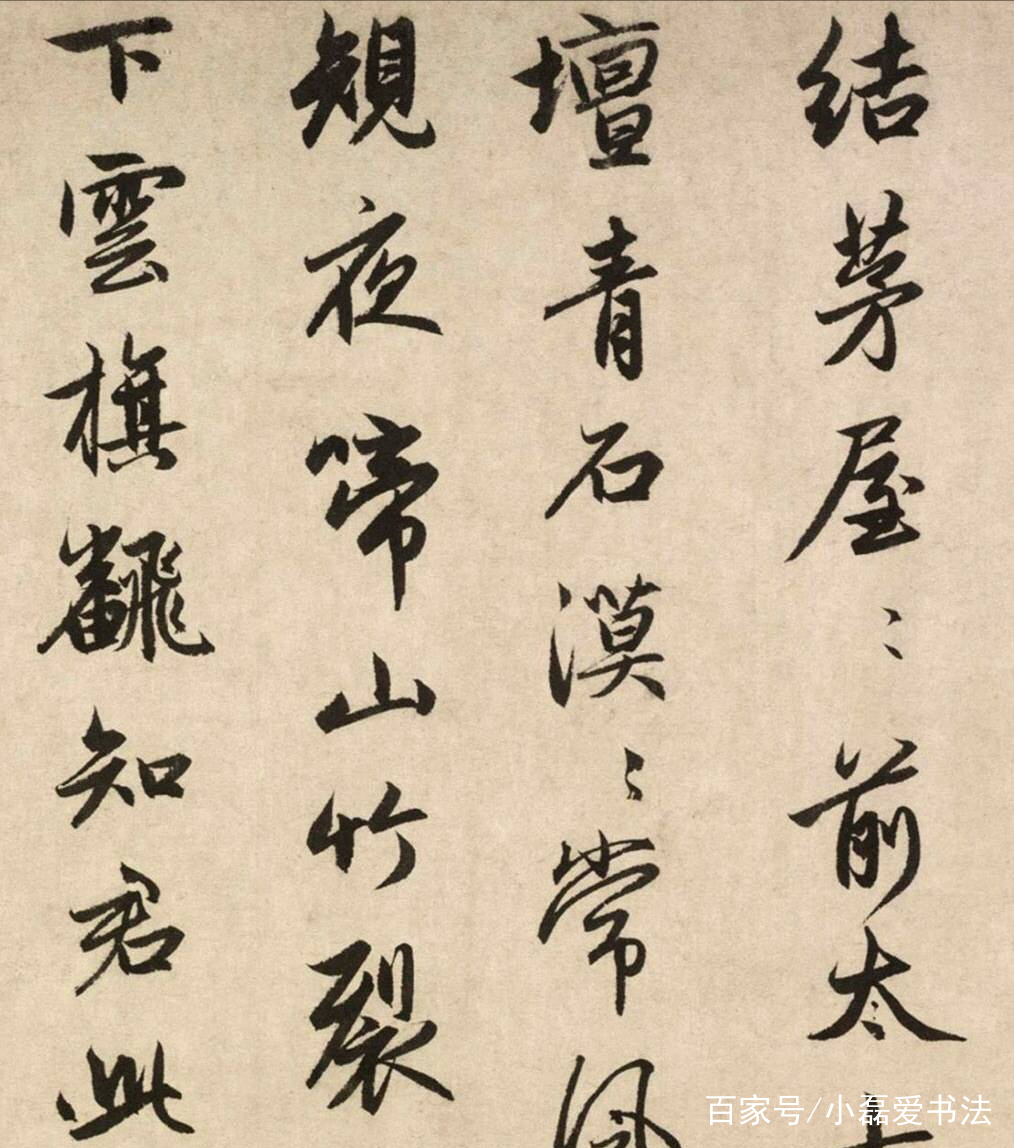 結茅屋〻前太
壇青石漠〻常風
規夜啼山竹裂
下雲旗飜知君此
百家号/小磊爱书法